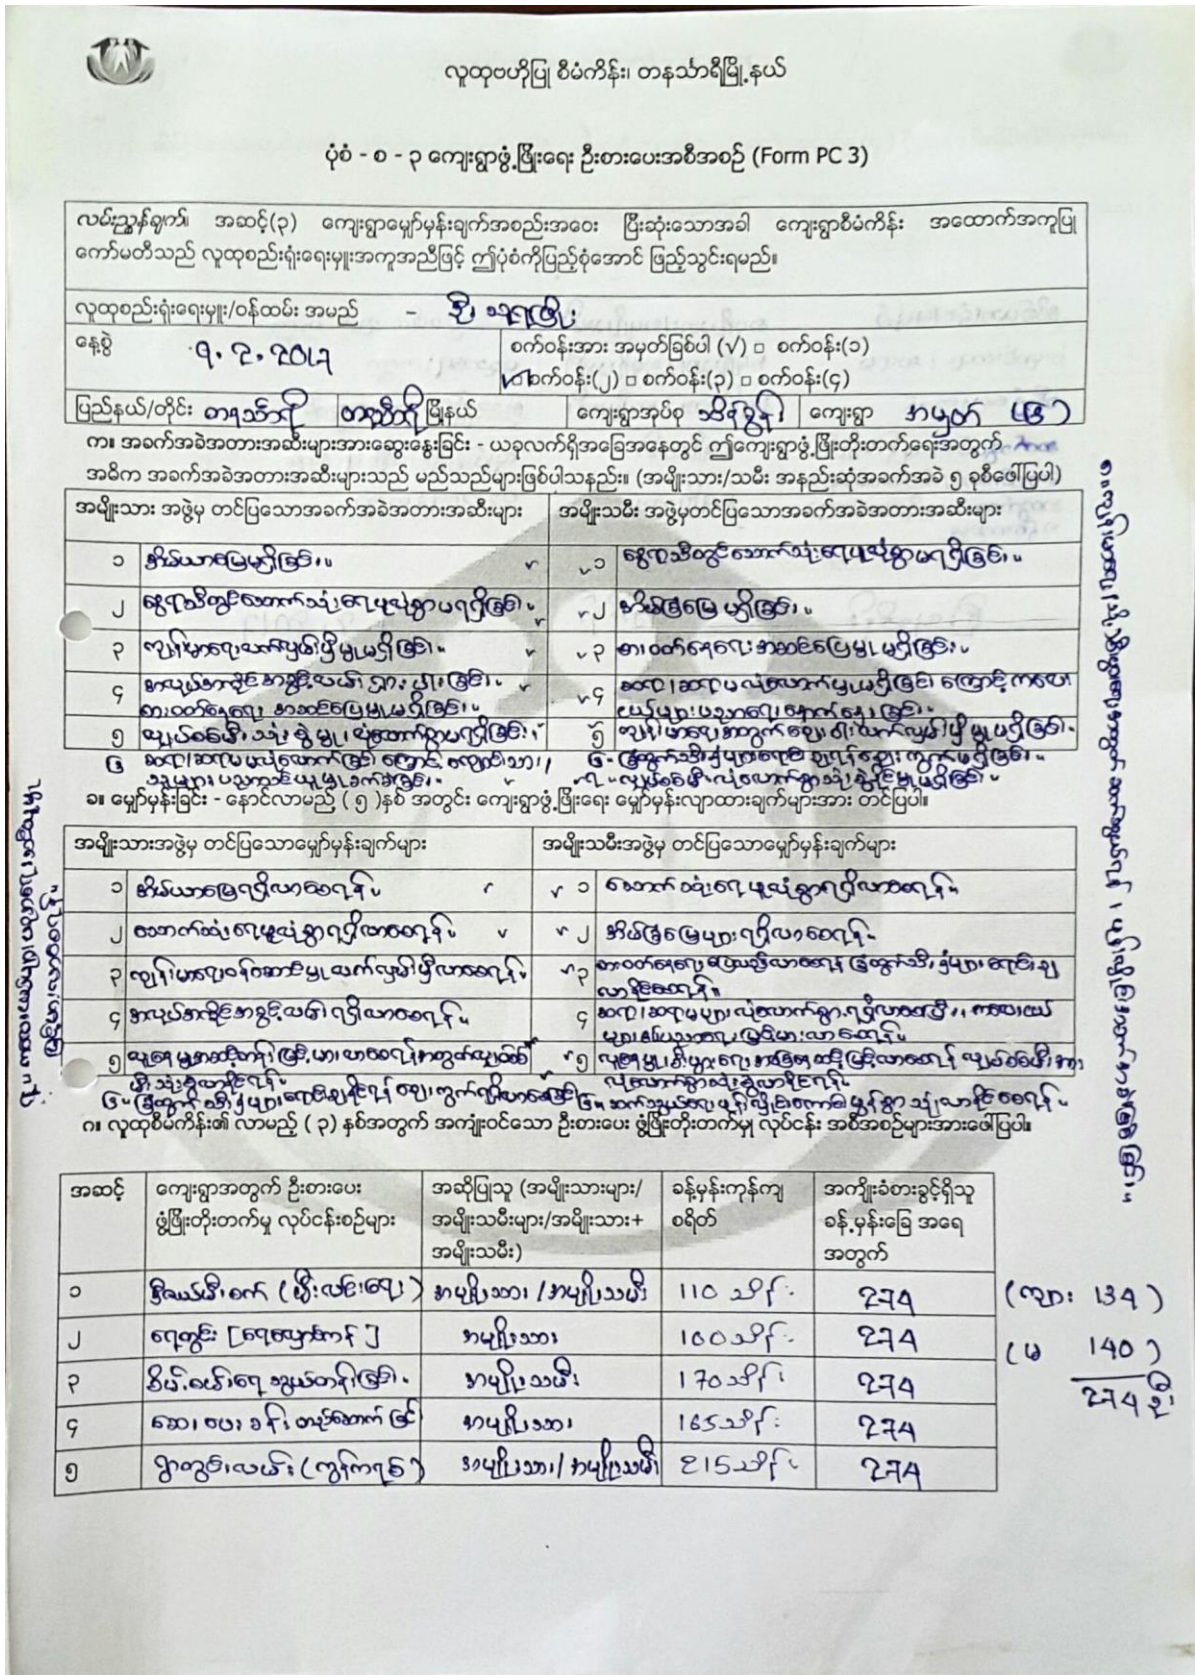 လူထုဗဟိုပြု စီမံကိန်း၊ တနင်္သာရီမြို့နယ်
ပုံစံ - စ - ၃ ကျေးရွာဖွံ့ဖြိုးရေး ဦးစားပေးအစီအစဉ် (Form PC 3)
လမ်းညွှန်ချက်၊ အဆင့်(၃) ကျေးရွာမျှော်မှန်းချက်အစည်းအဝေး ပြီးဆုံးသောအခါ ကျေးရွာစီမံကိန်း အထောက်အကူပြု
ကော်မတီသည် လူထုစည်းရုံးရေးမှူးအကူအညီဖြင့် ဤပုံစံကိုပြည့်စုံအောင် ဖြည့်သွင်းရမည်။
လူထုစည်းရုံးရေးမှူး/ဝန်ထမ်း အမည် - ဦး သူရဖြိုး
နေ့စွဲ ၅.၃.၂၀၁၇ စက်ဝန်းအား အမှတ်ခြစ်ပါ (√) □ စက်ဝန်း(၁)
√□ စက်ဝန်း(၂) □ စက်ဝန်း(၃) □ စက်ဝန်း(၄)
ပြည်နယ်/တိုင်း တနင်္သာရီ တနင်္သာရီ မြို့နယ် ကျေးရွာအုပ်စု သိန်ခွန်း ကျေးရွာ အမှတ် (၆)
က။ အခက်အခဲအတားအဆီးများအားဆွေးနွေးခြင်း - ယခုလက်ရှိအခြေအနေတွင် ဤကျေးရွာဖွံ့ဖြိုးတိုးတက်ရေးအတွက်
အဓိက အခက်အခဲအတားအဆီးများသည် မည်သည်များဖြစ်ပါသနည်း။ (အမျိုးသား/သမီး အနည်းဆုံအခက်အခဲ ၅ ခုစီဖေါ်ပြပါ)
အမျိုးသား အဖွဲ့မှ တင်ပြသောအခက်အခဲအတားအဆီးများ အမျိုးသမီး အဖွဲ့မှတင်ပြသောအခက်အခဲအတားအဆီးများ
၁ အိမ်ယာမြေမရှိခြင်း။ ၁ နွေရာသီတွင်သောက်သုံးရေဖူလုံစွာမရရှိခြင်း။
၂ နွေရာသီတွင်သောက်သုံးရေဖူလုံစွာမရရှိခြင်း။ ၂ အိမ်ခြံမြေ မရှိခြင်း။
၃ ကျန်းမာရေးလက်လှမ်းမှီမှုမရှိခြင်း။ ၃ စားဝတ်နေရေးအဆင်ပြေမှုမရှိခြင်း။
၄ အလုပ်အကိုင်အခွင့်အလမ်းရှားပါးခြင်း။ ၄ ဆရာ၊ဆရာမလုံလောက်မှုမရှိခြင်းကြောင့်ကလေး
စားဝတ်နေရေး အဆင်ပြေမှုမရှိခြင်း။ ငယ်များပညာရေးနောက်နှေးခြင်း။
၅ လျှပ်စစ်မီးသုံးစွဲမှု လုံလောက်စွာမရရှိခြင်း။ ၅ ကျန်းမာရေးအတွက်ဆေးဝါးလက်လှမ်းမှီမှုမရှိခြင်း။
၆ ဆရာ၊ဆရာမမလုံလောက်ခြင်းကြောင့် ကျောင်းသား၊ ၆-ခြံထွက်သီးနှံများရောင်းချရန်ဈေးကွက်မရှိခြင်း။
သူများပညာသင်ယူမှုခက်ခဲခြင်း။ ၇-လျှပ်စစ်မီးလုံလောက်စွာသုံးစွဲနိုင်မှုမရှိခြင်း။
ခ။ မျှော်မှန်းခြင်း - နောင်လာမည့် (၅)နှစ် အတွင်း ကျေးရွာဖွံ့ဖြိုးရေး မျှော်မှန်းလျာထားချက်များအား တင်ပြပါ။
အမျိုးသားအဖွဲ့မှ တင်ပြသောမျှော်မှန်းချက်များ အမျိုးသမီးအဖွဲ့မှ တင်ပြသောမျှော်မှန်းချက်များ
၁ အိမ်ယာမြေရရှိလာစေရန်။ ၁ သောက်သုံးရေဖူလုံစွာရရှိလာစေရန်။
၂ သောက်သုံးရေဖူလုံစွာရရှိလာစေရန်။ ၂ အိမ်ခြံမြေများရရှိလာစေရန်။
၃ ကျန်းမာရေးဝန်ဆောင်မှုလက်လှမ်းမှီလာစေရန်။ ၃ စားဝတ်နေရေးပြေလည်လာစေရန် ခြံထွက်သီးနှံများရောင်းချ
လာနိုင်စေရန်။
၄ အလုပ်အကိုင်အခွင့်အလမ်းရရှိလာစေရန်။ ၄ ဆရာ၊ဆရာမများလုံလောက်စွာရရှိလာစေပြီး၊ ကလေးငယ်
များ၏ပညာရေးမြင့်မားလာစေရန်။
၅ လူနေမှုအဆင့်အတန်းမြင့်မားလာစေရန်အတွက်လျှပ်စစ် ၅ လူနေမှု၊ စီးပွားရေးအခြေအနေဆင့်မြင့်လာစေရန် လျှပ်စစ်မီးအား
မီးသုံးစွဲလာနိုင်ရန်။ လုံလောက်စွာသုံးစွဲလာနိုင်ရန်။
၆-ခြံထွက်သီးနှံများရောင်းချနိုင်ရန်ဈေးကွက်ရရှိလာစေခြင်း ၆။ ဆက်သွယ်ရေးဖုန်းလှိုင်းကောင်းမွန်စွာသုံးလာနိုင်စေရန်။
ဂ။ လူထုစီမံကိန်း၏ လာမည့် (၃) နှစ်အတွက် အကျုံးဝင်သော ဦးစားပေး ဖွံ့ဖြိုးတိုးတက်မှု လုပ်ငန်း အစီအစဉ်များအားဖေါ်ပြပါ။
အဆင့် ကျေးရွာအတွက် ဦးစားပေး ဖွံ့ဖြိုးတိုးတက်မှု လုပ်ငန်းစဉ်များ အဆိုပြုသူ (အမျိုးသားများ/ အမျိုးသမီးများ/အမျိုးသား+ အမျိုးသမီး) ခန့်မှန်းကုန်ကျ စရိတ် အကျိုးခံစားခွင့်ရှိသူ ခန့်မှန်းခြေ အရေ အတွက်
၁ ဒီဇယ်မီးစက် (မီးလင်းရေး) အမျိုးသား/အမျိုးသမီး 110 သိန်း 274 (ကျား 134)
၂ ရေတွင်း [ရေလှောင်ကန်] အမျိုးသား 160 သိန်း 274 (မ 140)
၃ စိမ့်စမ်းရေသွယ်တန်းခြင်း။ အမျိုးသမီး 170 သိန်း 274 274 ဦး
၄ ဆေးပေးခန်းတည်ဆောက်ခြင်း အမျိုးသား 165 သိန်း 274
၅ ရွာတွင်းလမ်း (ကွန်ကရစ်) အမျိုးသား/အမျိုးသမီး 215 သိန်း 274